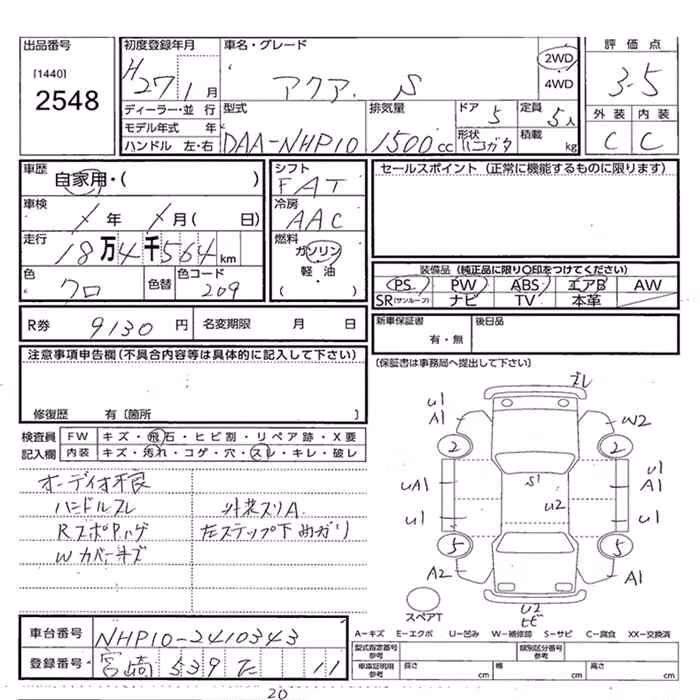 出品番号
[1440]
2548
初度登録年月
H27 1月
車名・グレード
アクア S
2WD
4WD
評価点
3.5
外装 内装
C C
ディーラー・並行
モデル年式 年
ハンドル 左・右
型式
DAA-NHP10
排気量
1500cc
ドア 5
形状
定員 5人
積載 kg
車歴
自家用・( )
車検
年 月( 日)
走行
18万4千564km
色
クロ
色替
色コード
209
シフト
FAT
冷房
AAC
燃料
ガソリン
軽・油
( ・ )
セールスポイント (正常に機能するものに限ります)
装備品 (純正品に限り○印をつけてください)
PS PW ABS エアB AW
SR(サンルーフ) ナビ TV 本革
R券 9130円 名変期限 月 日
新車保証書
有・無
後日品
(保証書は事務局へ提出して下さい)
注意事項申告欄(不具合内容等は具体的に記入して下さい)
修復歴 有〔箇所 〕
検査員
記入欄
FW キズ・飛石・ヒビ割・リペア跡・X要
内装 キズ・汚れ・コゲ・穴・スレ・キレ・破レ
オーディオ不良
ハンドルスレ
RスポPハゲ
Wカバーキズ
外装スリA
左ステップ下曲ガリ
ズレ
U1
A1
W2
2
2
S1
U2
UA1
U1
A1
U1
U1
5
5
A2
A1
U2
ヒビ
スペアT
車台番号 NHP10-2410343
登録番号 宮崎 539 た 11
A-キズ E-エクボ U-凹み W-補修跡 S-サビ C-腐食 XX-交換済
型式指定番号
参考
類別区分番号
参考
車庫証明用
参考
長さ cm
幅 cm
高さ cm
20